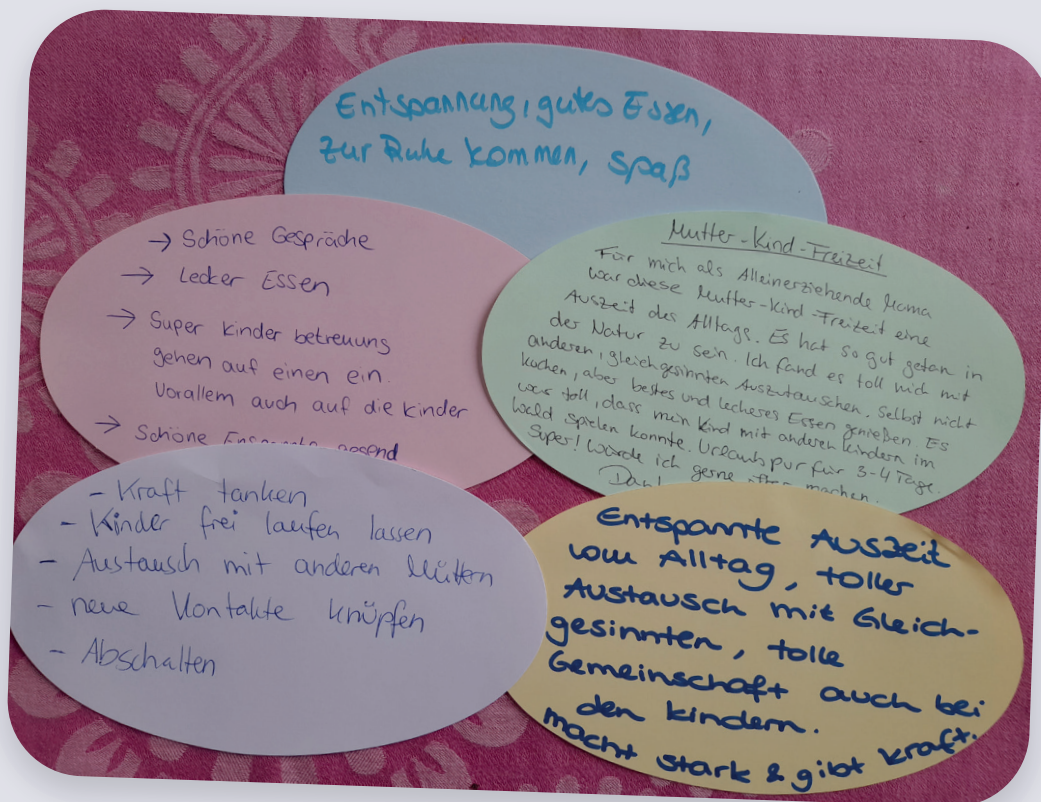 Entspannung, gutes Essen,
zur Ruhe kommen, spaß
→ Schöne Gespräche
→ Lecker Essen
→ Super kinder betreuung
gehen auf einen ein.
Vorallem auch auf die kinder
→ Schöne
Mutter-Kind-Freizeit
Für mich als Alleinerziehende Mama
war diese Mutter-Kind-Freizeit eine
Auszeit des Alltags. Es hat so gut getan in
der Natur zu sein. Ich fand es toll mich mit
anderen, gleichgesinnten Auszutauschen. Selbst nicht
kochen, aber bestes und leckeres Essen genießen. Es
war toll, dass mein Kind mit anderen Kindern im
Wald spielen konnte. Urlaub pur für 3-4 Tage.
Super! Würde ich gerne machen.
- Kraft tanken
- Kinder frei laufen lassen
- Austausch mit anderen Müttern
- neue Kontakte knüpfen
- Abschalten
Entspannte Auszeit
vom Alltag, toller
Austausch mit Gleich-
gesinnten, tolle
Gemeinschaft auch bei
den kindern.
macht stark & gibt kraft.